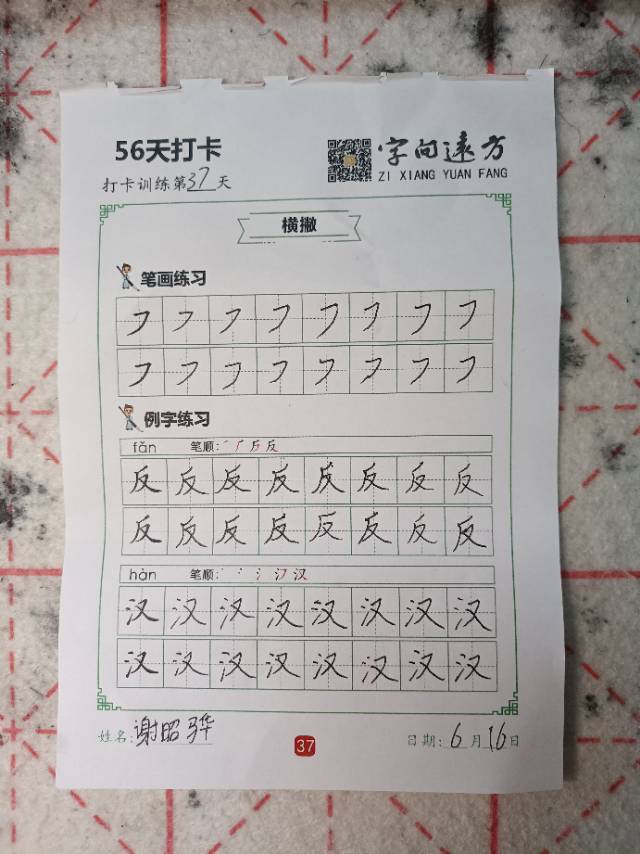 56天打卡
字向远方
打卡训练第37天
ZI XIANG YUAN FANG
横撇
笔画练习
㇇ ㇇ ㇇ ㇇ ㇇ ㇇ ㇇ ㇇
㇇ ㇇ ㇇ ㇇ ㇇ ㇇ ㇇ ㇇
例字练习
fǎn 笔顺: 反
反 反 反 反 反 反 反 反
反 反 反 反 反 反 反 反
hàn 笔顺: 汉
汉 汉 汉 汉 汉 汉 汉 汉
汉 汉 汉 汉 汉 汉 汉 汉
姓名:谢昭骅
37
日期:6月16日